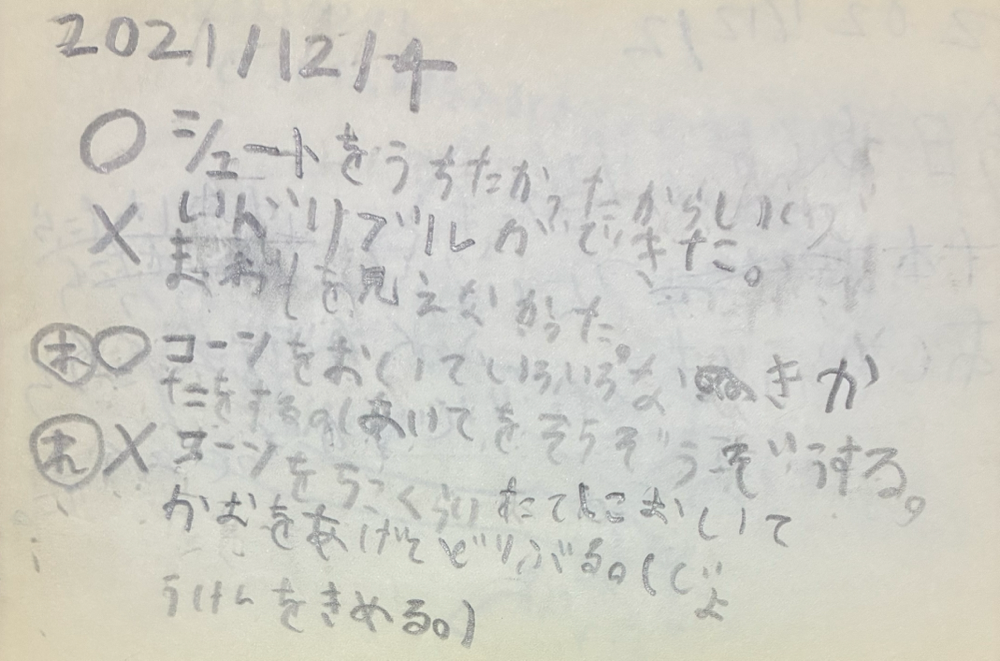 2021/12/4
○ シュートをうちたかったからしん
× けんドリブルができた。
まわりを見えなかった。
㋭○ コーンをおいていろいろなぬきか
たをする。(あいてをそうぞうぞうする。
㋹× コーンを5こくらいたてにおいて
かおをあげてどりぶる。(じょ
うけんをきめる。)